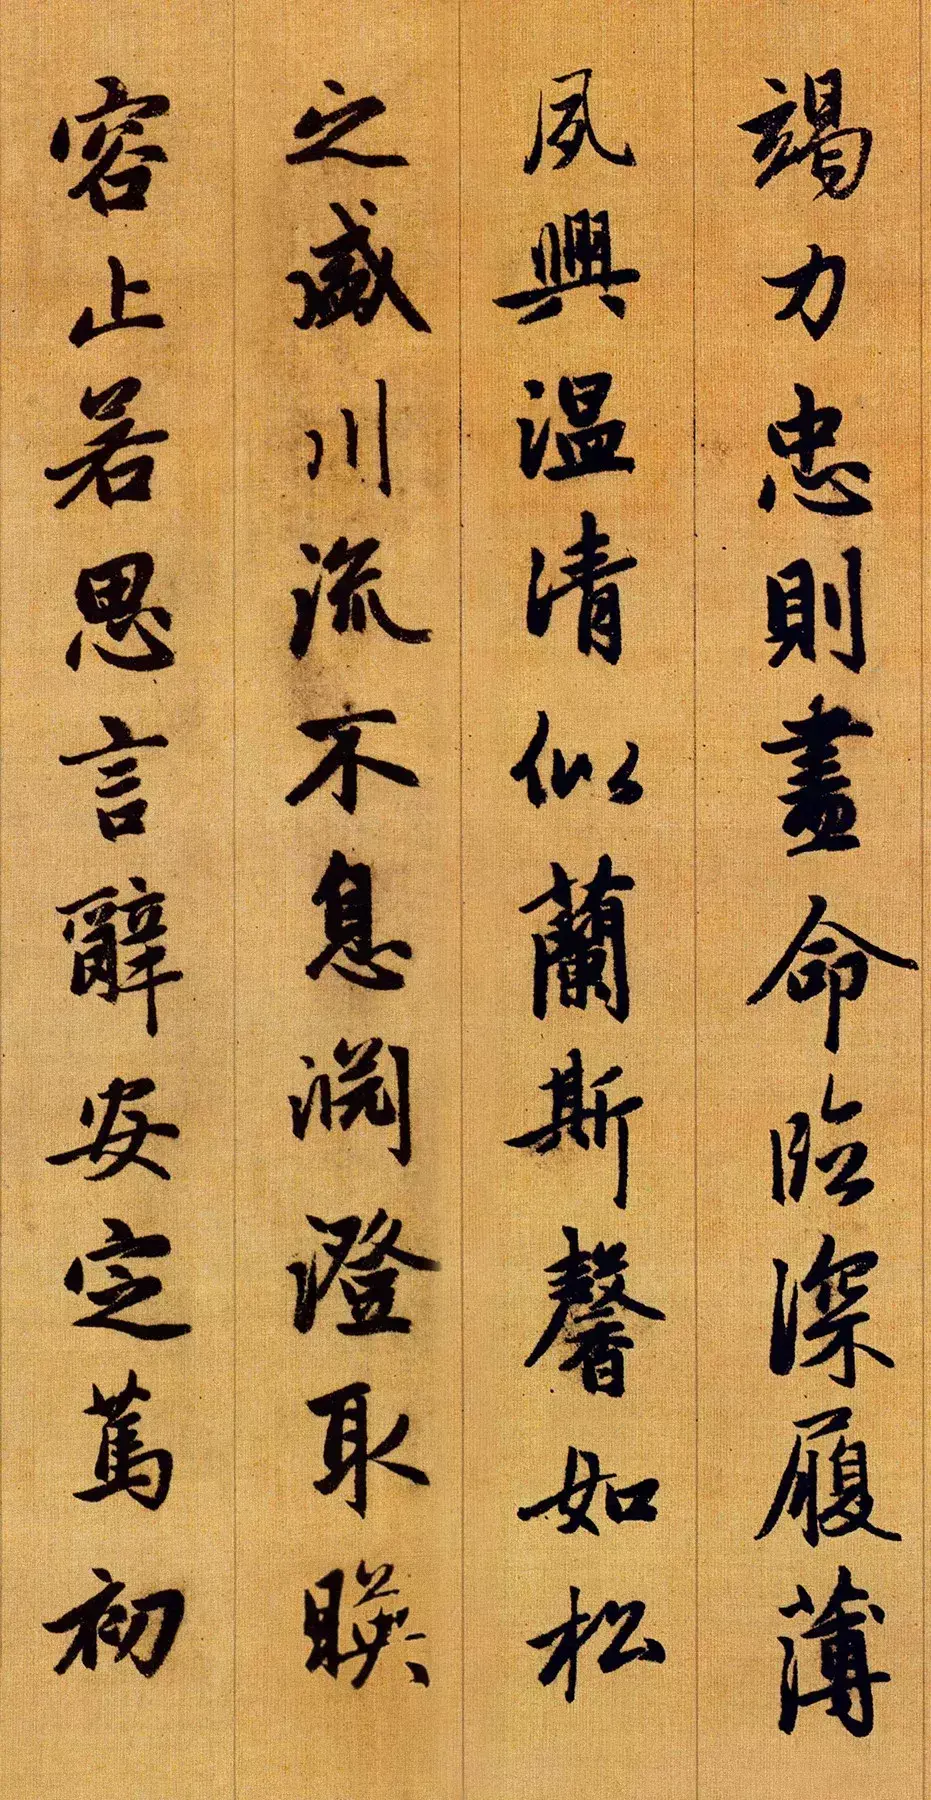 竭力忠則盡命臨深履薄
夙興温清似蘭斯馨如松
之盛川流不息淵澄取暎
容止若思言辭安定篤初